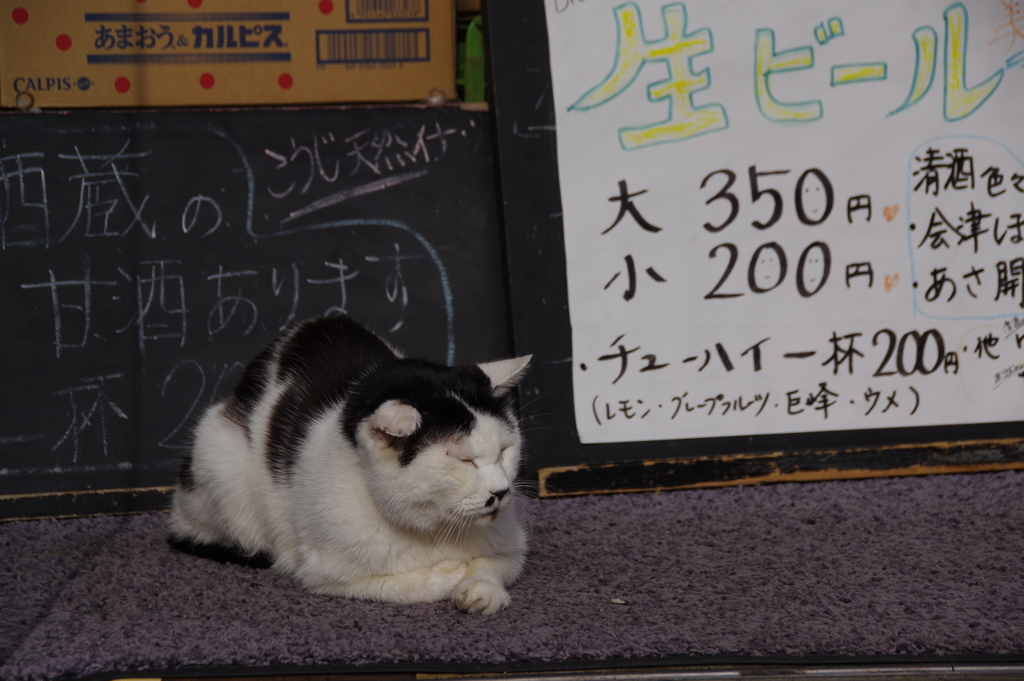 あまおう&カルピス
CALPIS
こうじ天然イナ
酒蔵の
甘酒あります
一杯 20
生ビール
大 350円
小 200円
・チューハイ 一杯200円
(レモン・グレープフルツ・巨峰・ウメ)
清酒色々
・会津ほ
・あさ開
・他